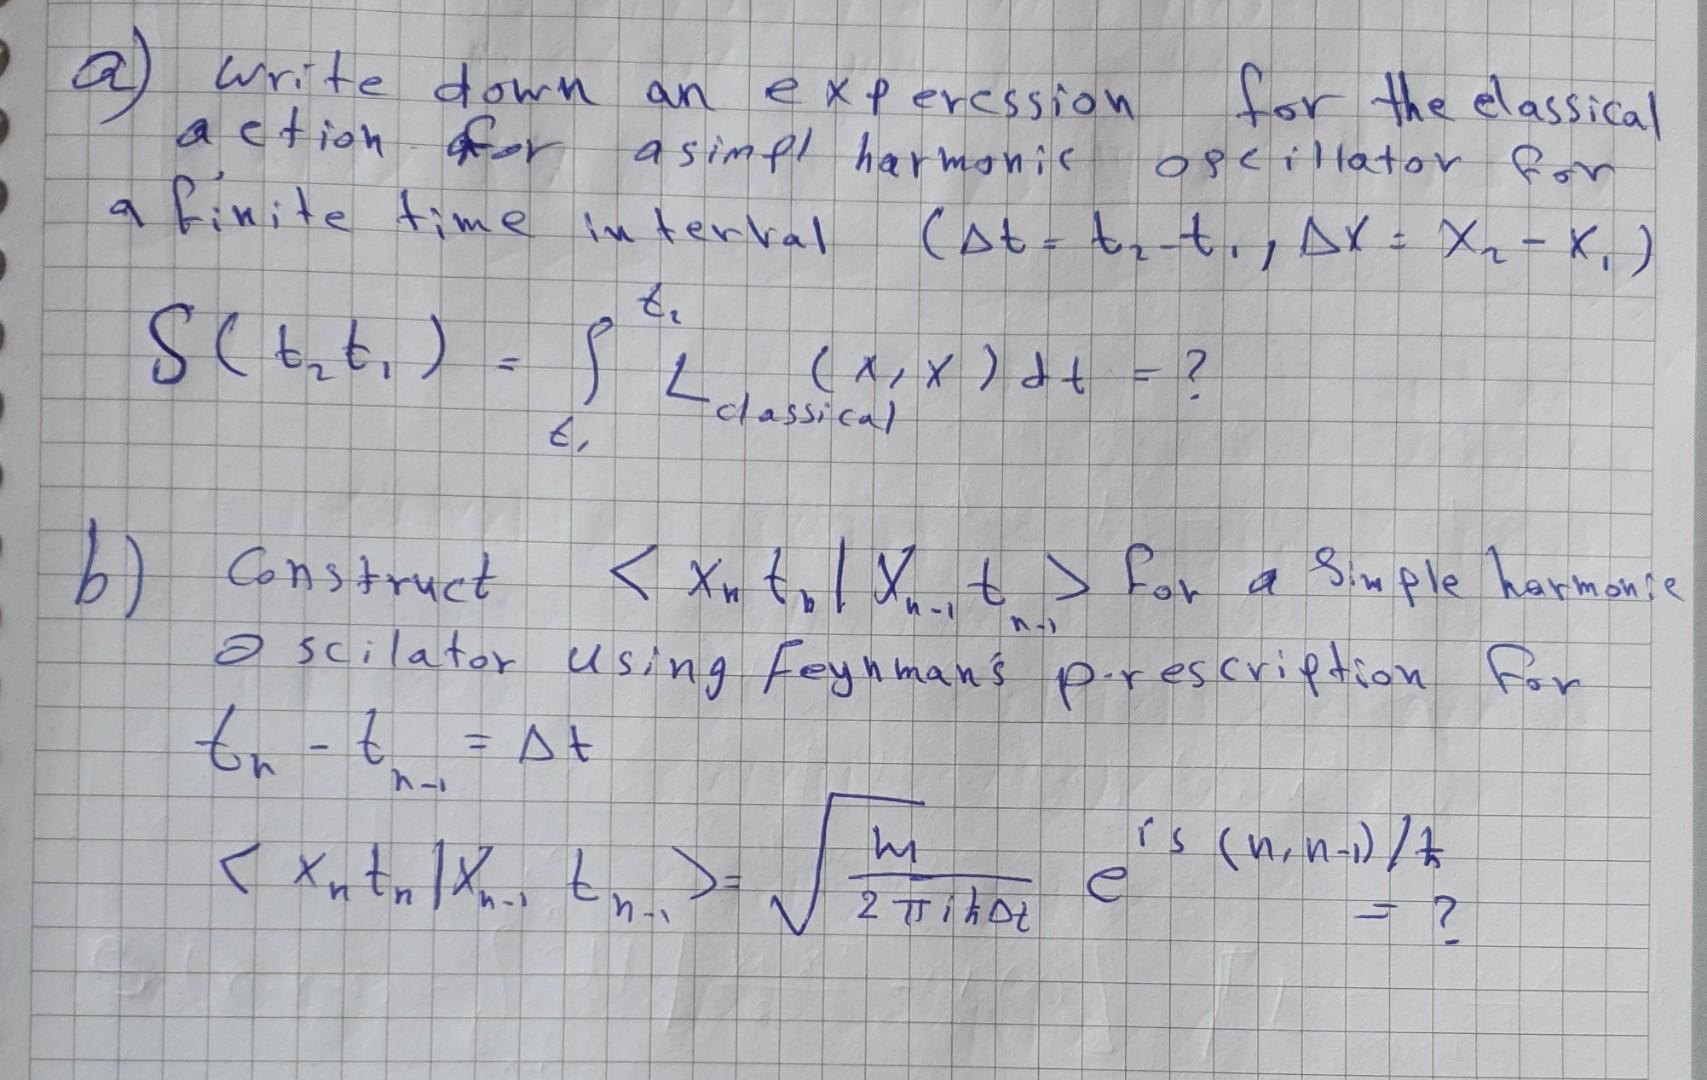 a) write down an experession for the classical
action for a simpl harmonic oscillator for
a finite time interval (Δt = t₂-t₁, ΔX = X₂ - X₁)
S(t₂t₁) = ∫ₜ₁ᵗ² L classical (x, x) dt = ?
b) Construct < xₙ tₙ | Xₙ₋₁ tₙ₋₁ > for a Simple harmonic
oscilator using feynman's prescription for
tₙ - tₙ₋₁ = Δt
< xₙ tₙ | Xₙ₋₁ tₙ₋₁ > = √(m / 2πiħΔt) e^{is(n,n-1)/ħ} = ?